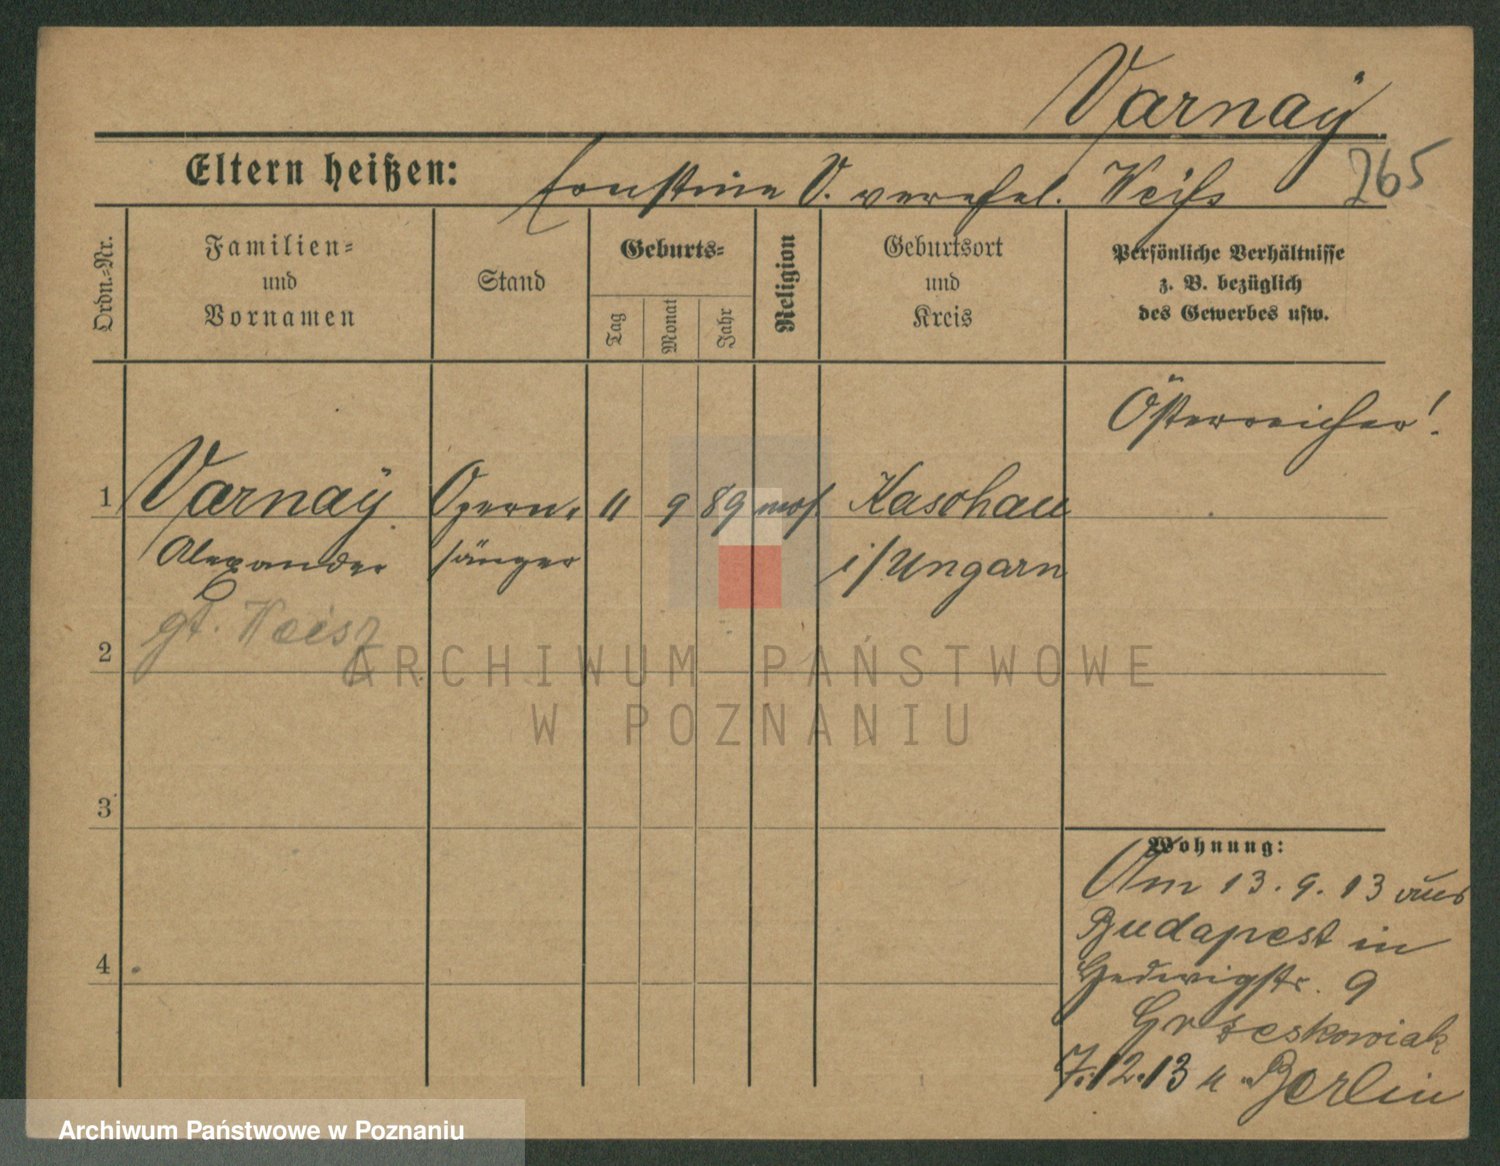 Varnaÿ.
265
Eltern heißen: Ernstine V. verehel. Weiss
Ordn.-Nr.
Familien=
und
Vornamen
Stand
Geburts=
Tag
Monat
Jahr
Religion
Geburtsort
und
Kreis
Persönliche Verhältnisse
z. B. bezüglich
des Gewerbes usw.
Österreicher!
1 Varnaÿ. Opern- 11 9 89 mos. Kaschau
Alexander sänger i/Ungarn
gt. Weisz
2
3
4
Wohnung:
Am 13.9.13 aus
Budapest in
Hedwigstr. 9
Grzeskowiak
7.12.13 n. Berlin
ARCHIWUM PAŃSTWOWE
W POZNANIU
Archiwum Państwowe w Poznaniu